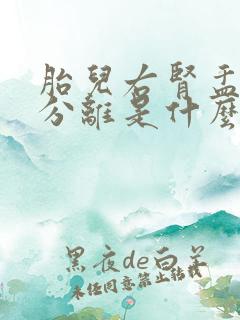 胎兒右腎盂
分離是什麼
黑夜de白羊
未任同意禁止轉載